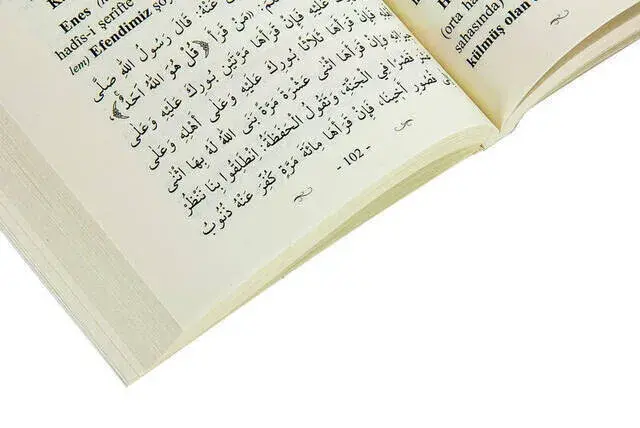 Enes
hadîs-i şerîfte
lem) Efendimiz
عَنْهُ: قَالَ رَسُولُ اللهِ صَلَّى
مَنْ قَرَأَ ﴿قُلْ هُوَ اللهُ اَحَدٌ﴾
عَلَيْهِ فَاِنْ قَرَأَهَا مَرَّتَيْنِ بُورِكَ عَلَيْهِ وَعَلَى
فَاِنْ قَرَأَهَا ثَلَاثًا بُورِكَ عَلَيْهِ وَعَلَى اَهْلِهِ وَعَلَى
وَاِنْ قَرَأَهَا اثْنَىْ عَشْرَةَ مَرَّةً بَنَى اللهُ لَهُ بِهَا اثْنَىْ
قَصْرًا فِي الْجَنَّةِ، وَتَقُولُ الْحَفَظَةُ: اِنْطَلِقُوا بِنَا نَنْظُرُ
قُصُورَ اَخِينَا، فَاِنْ قَرَأَهَا مِائَةَ مَرَّةٍ كُفِّرَ عَنْهُ ذُنُوبُ
- 102 -
(orta
sahasında)
külmüş olan